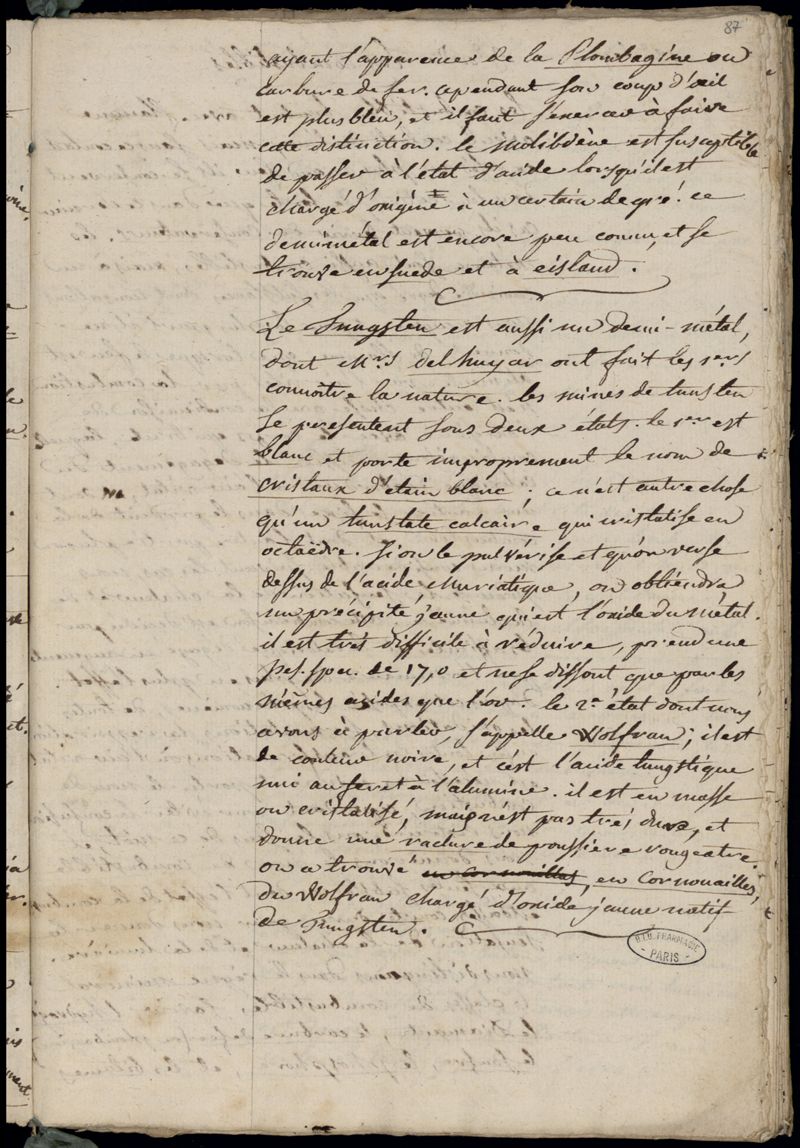 87
ayant l'apparence de la Plombagine ou
carbure de fer. cependant son coup d'œil
est plus bleu, et il faut s'exercer à faire
cette distinction. le molibdène est susceptible
de passer à l'état d'acide lorsqu'il est
chargé d'oxigène à un certain degré. ce
demi métal est encore peu connu, et se
trouve en suede et à eisland.
Le Tungsten est aussi un demi-métal,
dont Mrs delhuyar ont fait les 1ers
connoitre la nature. les mines de tunsten
se presentent sous deux états. le 1er est
blanc et porte improprement le nom de
cristaux d'étain blanc ; ce n'est autre chose
qu'un tunstate calcaire qui cristalise en
octaëdre. si on le pulvérise et qu'on verse
dessus de l'acide Muriatique, on obtiendra
un précipité jaune qui est l'oxide du métal.
il est très difficile à réduire, prend une
pes. spec. de 17,0 et ne se dissout que par les
mêmes acides que l'or. le 2e état dont nous
avons à parler, s'appelle Wolfran ; il est
de couleur noire, et c'est l'acide tungstique
uni au fer et à l'alumine. il est en masse
ou cristalisé, mais n'est pas très dure, et
donne une raclure de poussiere rougeatre.
on a trouvé en cornouilles, en cornouailles,
du Wolfran chargé d'oxide jaune natif
de Tungsten.
B.I.U. PHARMACIE
PARIS